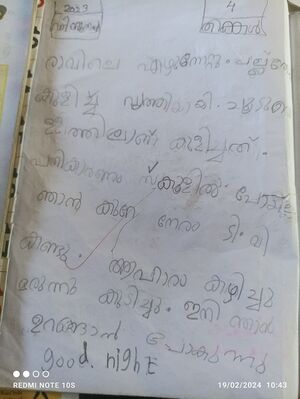 2023
4
തിങ്കൾ
രാവിലെ എഴുന്നേറ്റു. പല്ല്
കുളിച്ച് വൃത്തിയായി. ചൂടു
കുളിച്ചത്.
പനികാരണം സ്കൂളിൽ പോയില്ല
ഞാൻ കുറേ നേരം ടി. വി
കണ്ടു. ആഹാരം കഴിച്ചു
മരുന്നു കുടിച്ചു. ഇനി ഞാൻ
ഉറങ്ങാൻ പോകുന്നു
good. night
REDMI NOTE 10S
19/02/2024 10:43